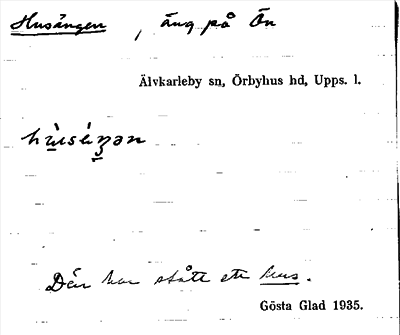 Husängen, äng på Ön
Älvkarleby sn, Örbyhus hd, Upps. l.
Där har stått ett hus.
Gösta Glad 1935.